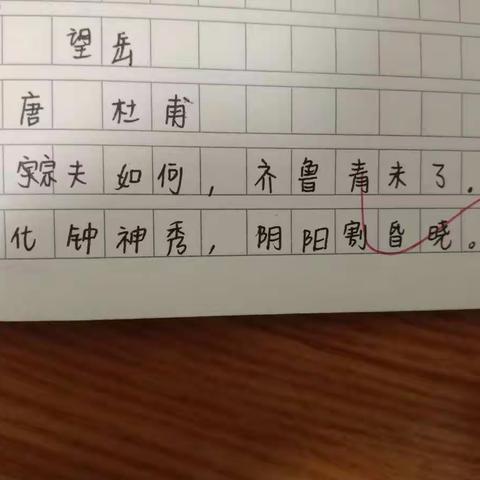 望岳
唐 杜甫
宗夫如何，齐鲁青未了。
化钟神秀，阴阳割昏晓。